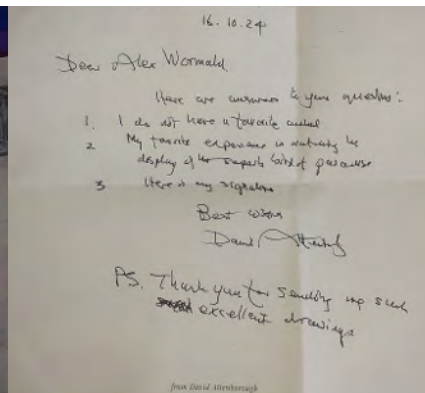 16.10.24
Dear Alex Wormald
Here are answers to your questions:
1. I do not have a favorite animal
2 My favorite experience is watching the
display of the superb bird of paradise
3 Here is my signature
Best wishes
David Attenborough
PS. Thank you for sending me such
excellent drawings
from David Attenborough